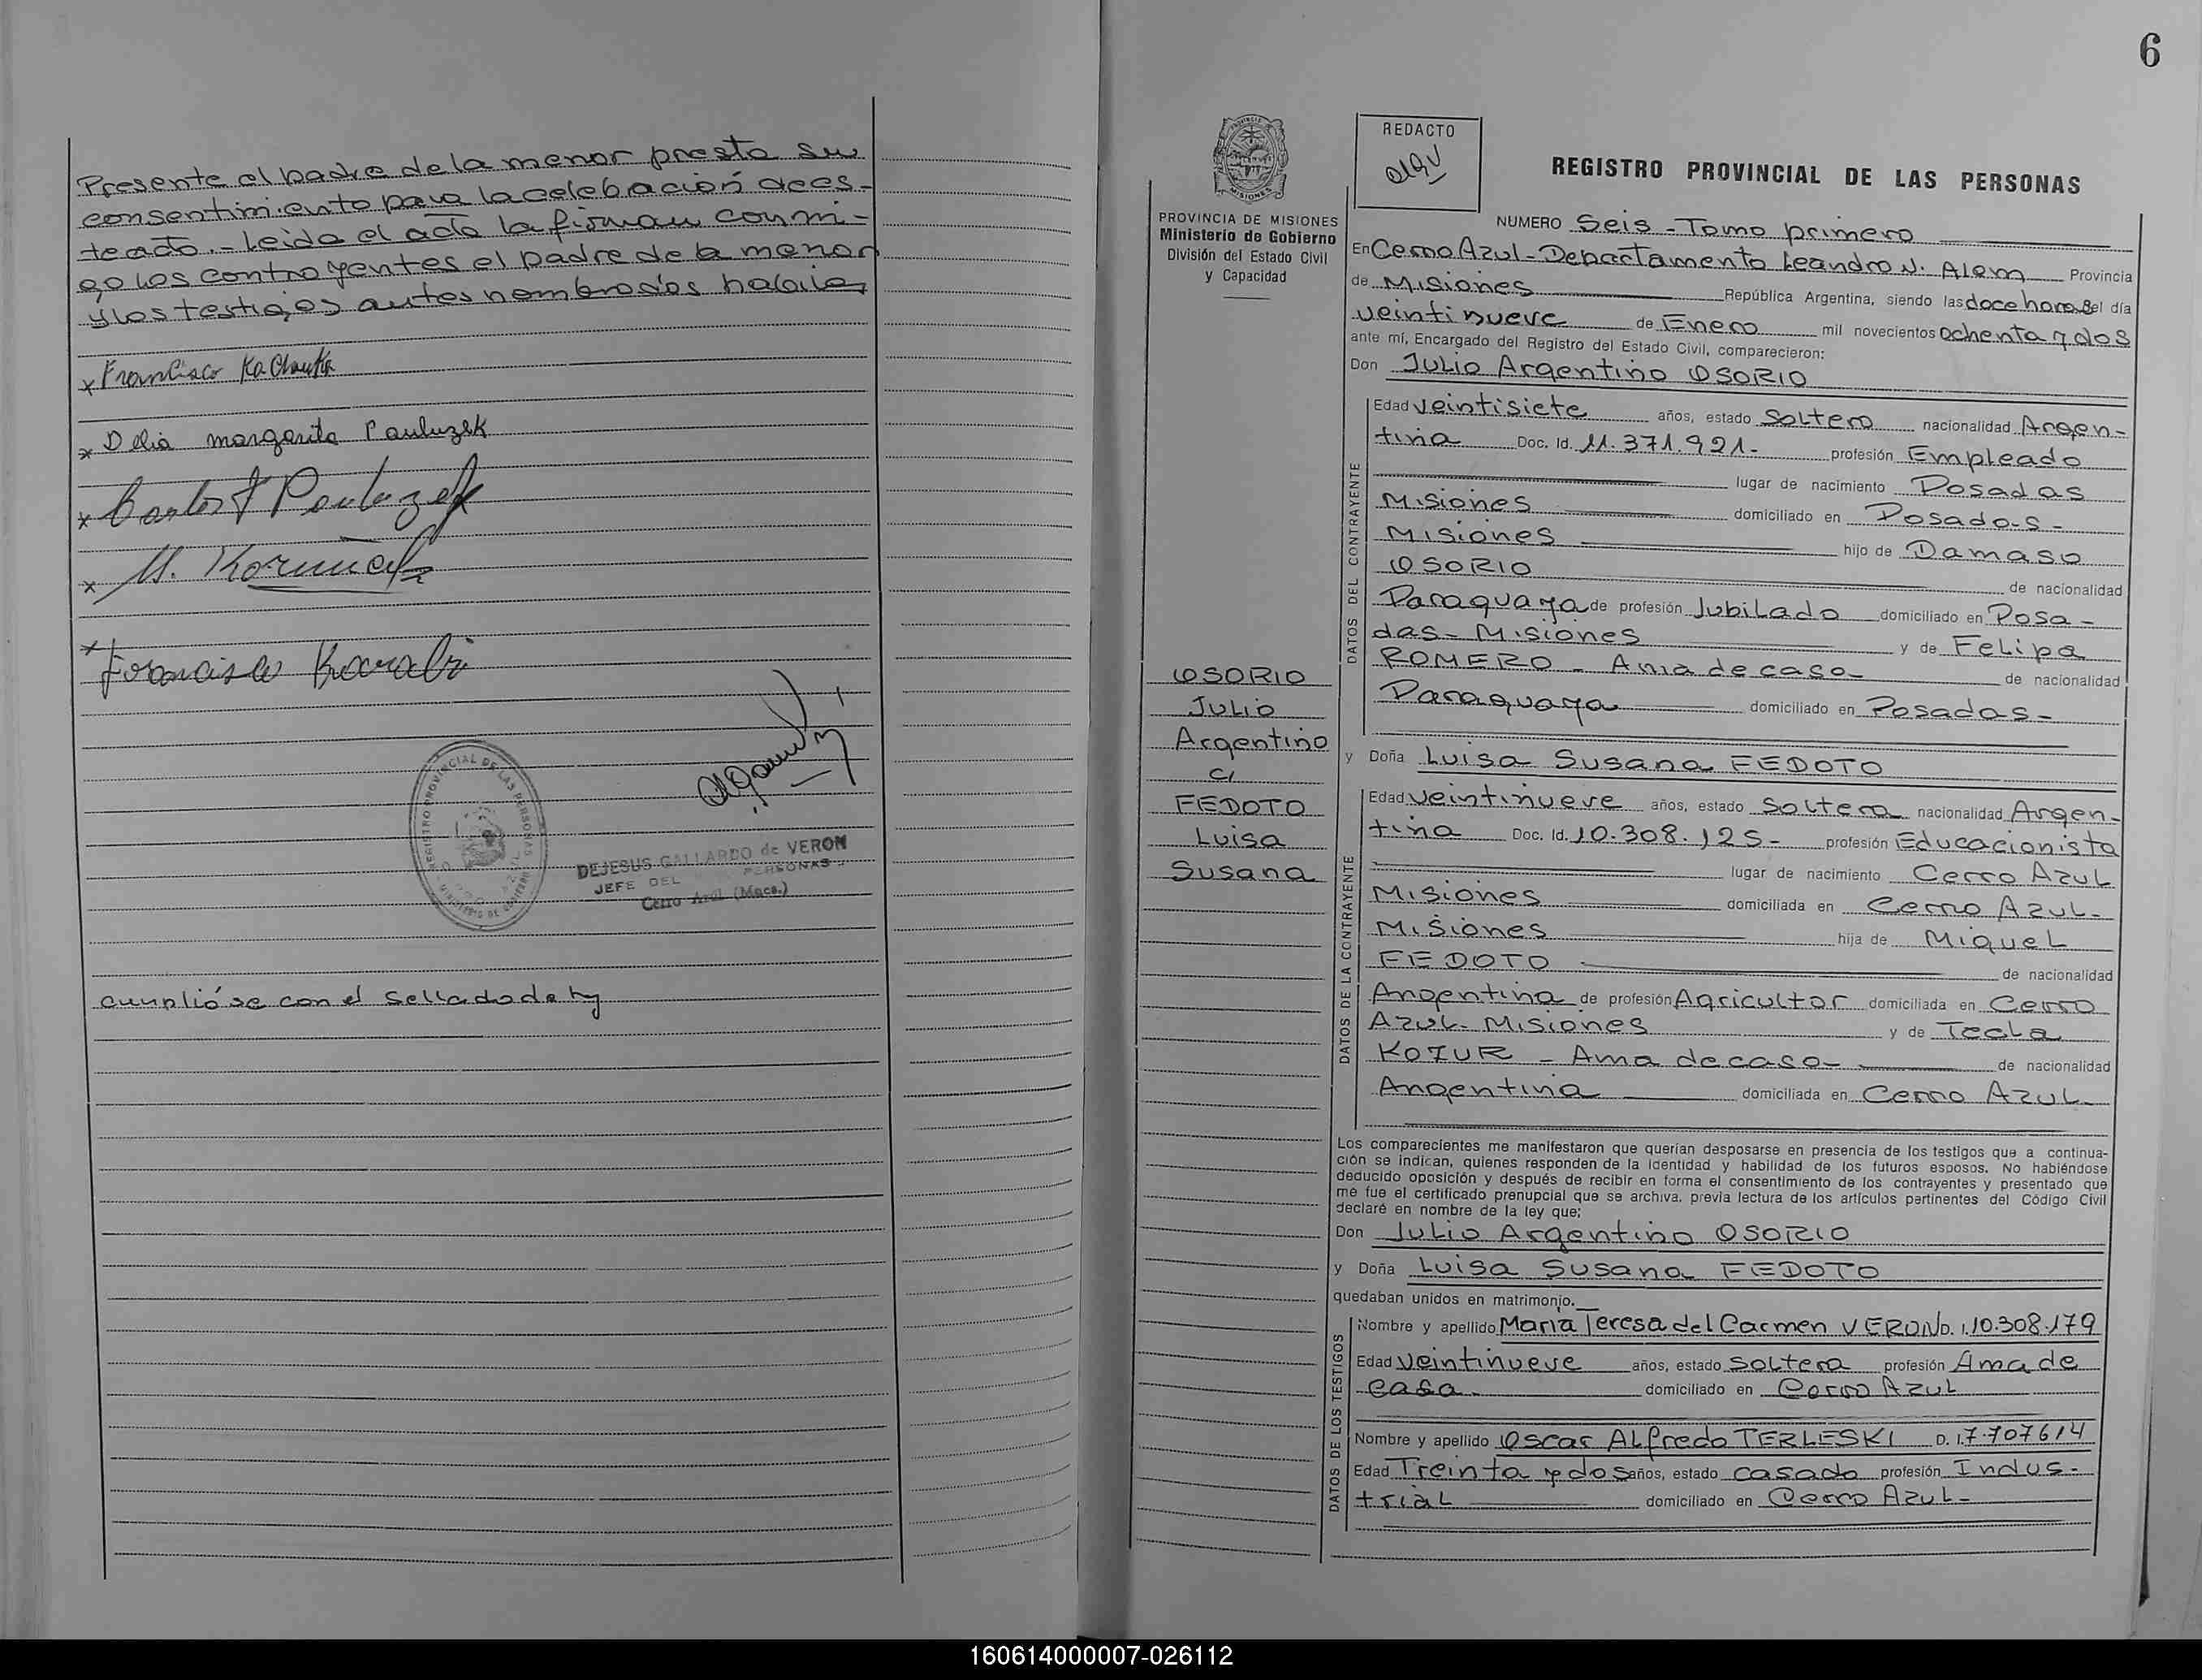 Presente el padre de la menor presta su
consentimiento para la celebración de es-
te acto.- Leida el acta la firman conmi-
go los contrayentes el padre de la menor
y los testigos antes nombrados habiles
x Francisco Kachauka
x Delia margarita Pauluzek
x Carlos F Pauluzek
x M.
x Francisco
REGISTRO PROVINCIAL DE LAS PERSONAS
DEJESUS GALLARDO de VERON
JEFE DEL PERSONAS
Cerro Azul (Mnes.)
cumplióse con el sellado de ley
6
PROVINCIA DE MISIONES
Ministerio de Gobierno
División del Estado Civil
y Capacidad
OSORIO
Julio
Argentino
c/
FEDOTO
Luisa
Susana
REDACTO
REGISTRO PROVINCIAL DE LAS PERSONAS
NUMERO Seis - Tomo primero
En Cerro Azul - Departamento Leandro N. Alem Provincia
de Misiones República Argentina, siendo las doce horas del día
veintinueve de Enero mil novecientos ochenta y dos
ante mí, Encargado del Registro del Estado Civil, comparecieron:
Don Julio Argentino OSORIO
DATOS DEL CONTRAYENTE
Edad veintisiete años, estado soltero nacionalidad Argen-
tina Doc. Id. 11.371.921.- profesión Empleado
lugar de nacimiento Posadas
Misiones domiciliado en Posadas-
Misiones hijo de Damaso
OSORIO de nacionalidad
Paraguaya de profesión Jubilado domiciliado en Posa-
das- Misiones y de Felipa
ROMERO - Ama de casa- de nacionalidad
Paraguaya domiciliado en Posadas-
y Doña Luisa Susana FEDOTO
DATOS DE LA CONTRAYENTE
Edad veintinueve años, estado soltera nacionalidad Argen-
tina Doc. Id. 10.308.125- profesión Educacionista
lugar de nacimiento Cerro Azul
Misiones domiciliada en Cerro Azul-
Misiones hija de Miguel
FEDOTO de nacionalidad
Argentina de profesión Agricultor domiciliada en Cerro
Azul- Misiones y de Tecla
KOZUR - Ama de casa- de nacionalidad
Argentina domiciliada en Cerro Azul-
Los comparecientes me manifestaron que querían desposarse en presencia de los testigos que a continua-
ción se indican, quienes responden de la identidad y habilidad de los futuros esposos. No habiéndose
deducido oposición y después de recibir en forma el consentimiento de los contrayentes y presentado que
me fue el certificado prenupcial que se archiva, previa lectura de los artículos pertinentes del Código Civil
declaré en nombre de la ley que;
Don Julio Argentino OSORIO
y Doña Luisa Susana FEDOTO
quedaban unidos en matrimonio.
DATOS DE LOS TESTIGOS
Nombre y apellido María Teresa del Carmen VERON D. I. 10.308.179
Edad veintinueve años, estado soltera profesión Ama de
casa- domiciliado en Cerro Azul
Nombre y apellido Oscar Alfredo TERLESKI D. I. 7.707614
Edad Treinta y dos años, estado casado profesión Indus-
trial domiciliado en Cerro Azul-
160614000007-026112